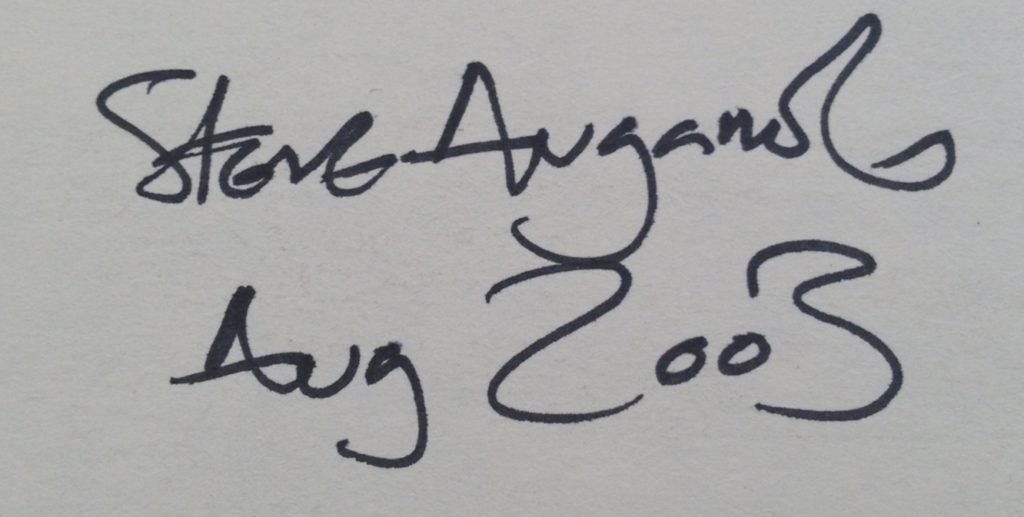 Steve Augarde
Aug 2003